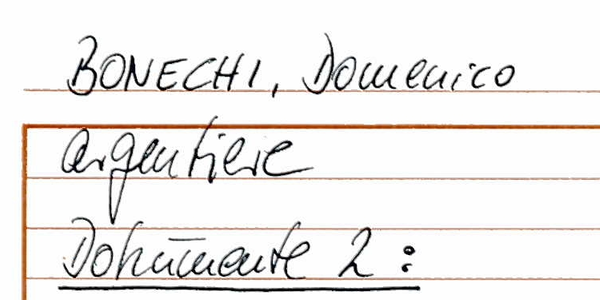 BONECHI, Domenico
argentiere
Dokumente 2: